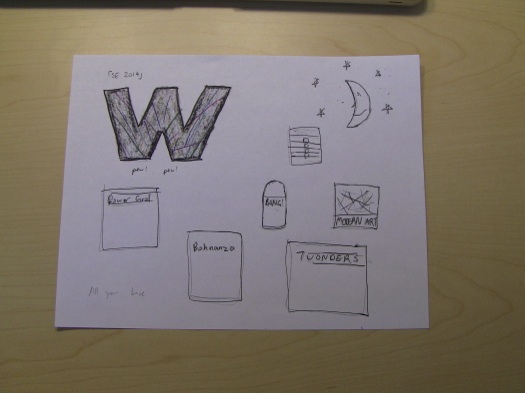 CSE 2014
W
pew! pew!
Power Grid
BANG!
MODERN ART
Bohnanza
7 WONDERS
All your base